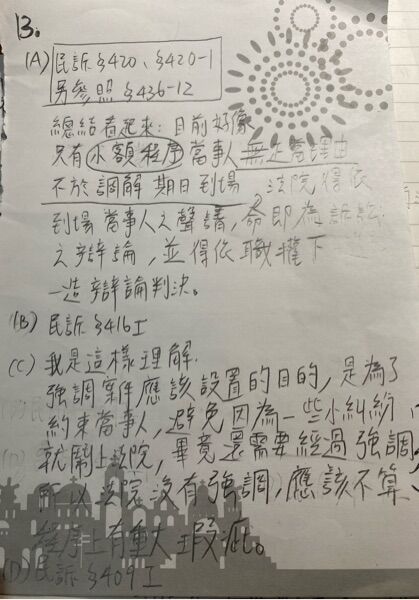 13.
(A) 民訴§420、§420-1
另參照§436-12
總結看起來:目前好像
只有小額程序當事人無正當理由
不於調解期日到場 法院得依
到場當事人之聲請,命即為訴訟
之辯論,並得依職權下
一造辯論判決。
(B) 民訴§416I
(C) 我是這樣理解.
強調案件應該設置的目的,是為了
約束當事人,避免因為一些小糾紛
就鬧上法院,畢竟還需要經過強調,
所以法院沒有強調,應該不算
程序上有重大瑕疵。
(D) 民訴§409I